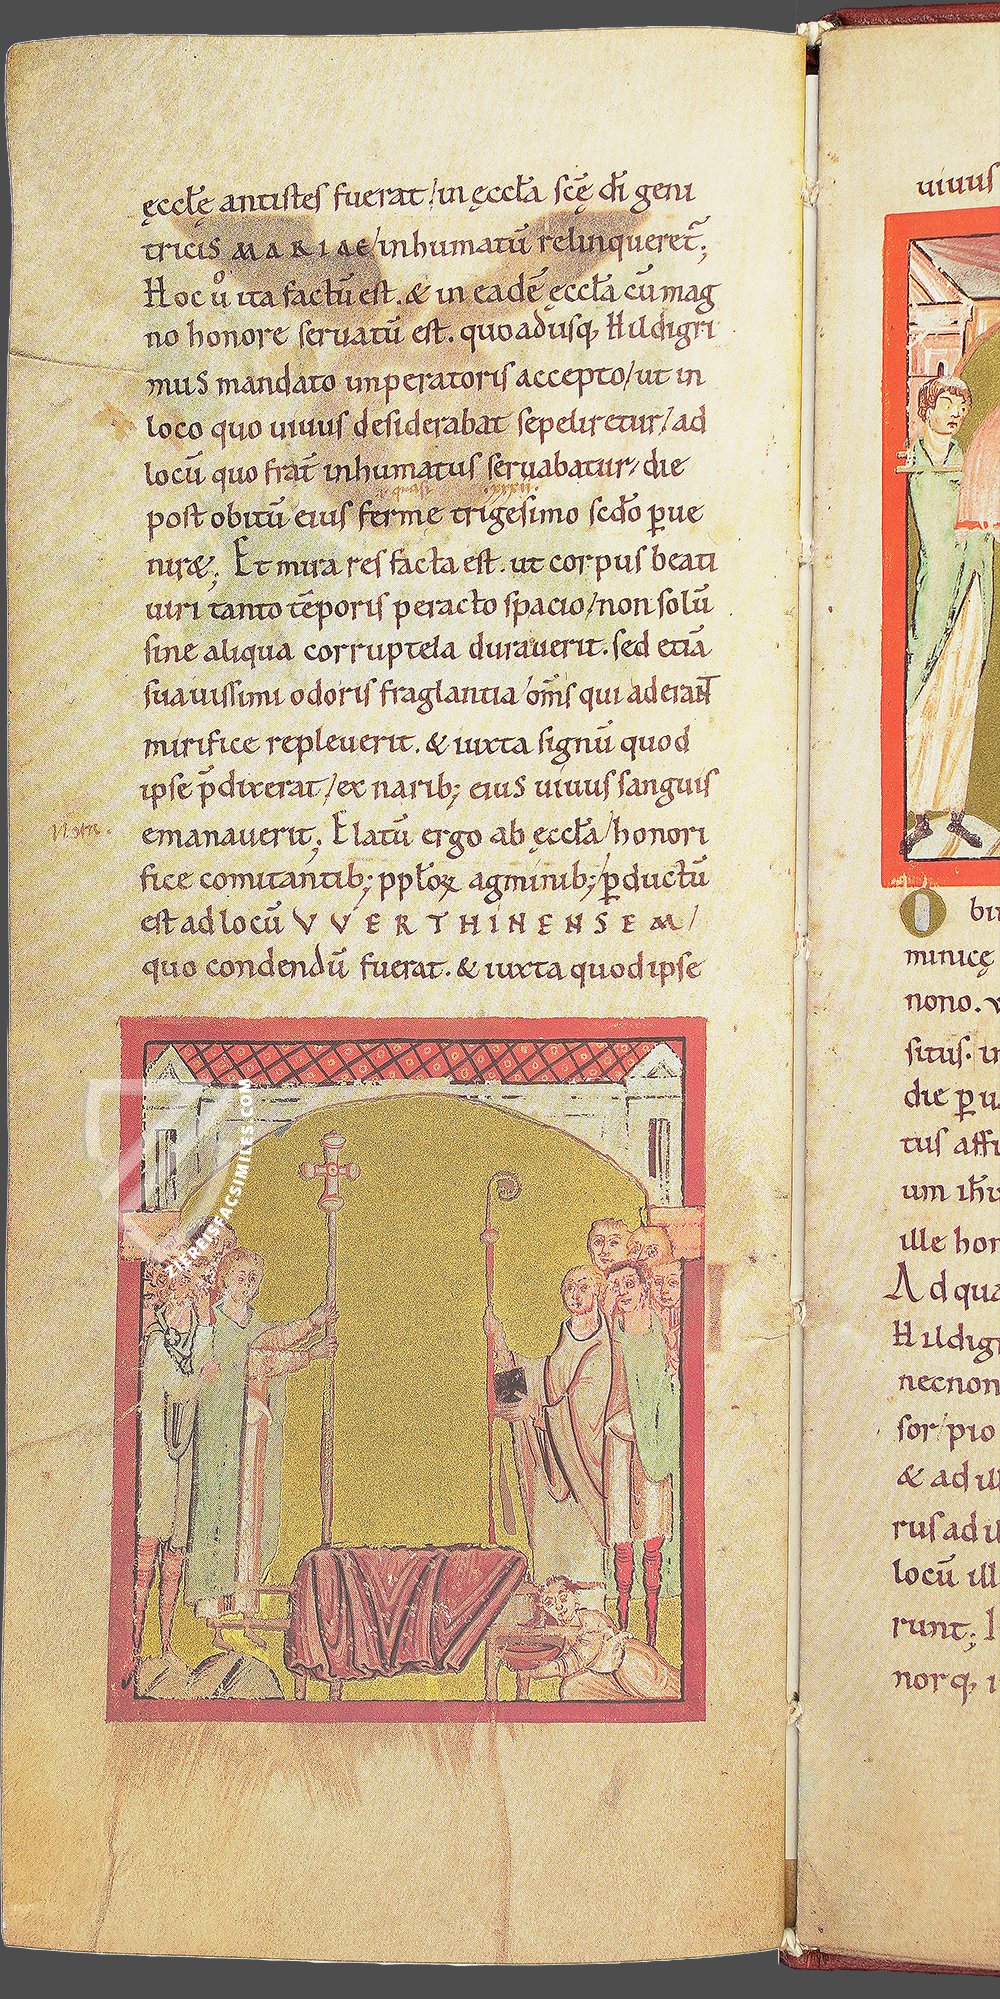 ęccłę antistes fuerat / in ęccła scę di geni
tricis MARIAE / inhumatū relinqueret̄;
Hoc ů ita factū est. & in eadē ęccła cū mag
no honore seruatū est. quoadusq; Hildigri
mus mandato imperatoris accepto / ut in
loco quo uiuus desiderabat sepeliretur / ad
locū quo frat̄ inhumatus seruabatur / die
quasi xxxii.
post obitū eius ferme trigesimo scdo ꝑue
nir&; Et mira res facta est. ut corpus beati
uiri tanto tēporis peracto spacio / non solū
sine aliqua corruptela durauerit. sed etiā
suauissimi odoris fraglantia / oms qui aderant
mirifice repleuerit. & iuxta signū quod
ipse p̄dixerat / ex narib; eius uiuus sanguis
Nota.
emanauerit; Elatū ergo ab ęccła / honori
fice comitantib; ppłoꝝ agminib; / ꝑductū
est ad locū VVERTHINENSEM /
quo condendū fuerat. & iuxta quod ipse
ZIEREISFACSIMILES.COM
uiuus
O bi
minicę
nono. v
situs. in
die ꝑ u
tus affi
um ihu
ille hon
Ad qua
Hildigr
necnon
sor / pio
& ad ill
rus ad il
locū ill
runt; I
norq; i